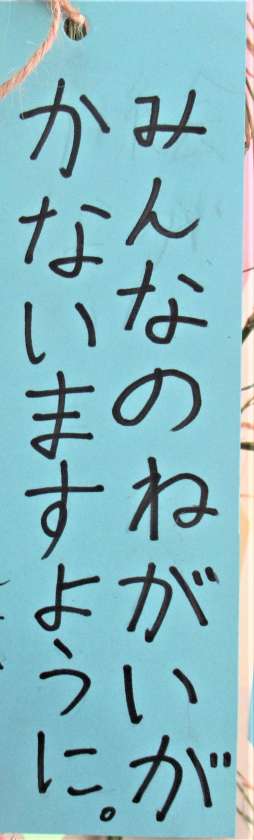 みんなのねがいが
かないますように。